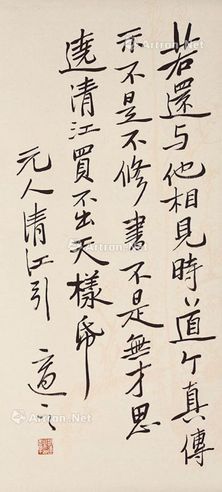 若還与他相見時道个真傳
示不是不修書不是無才思
遶清江買不出天樣帋
元人清江引 適之
Artron.Net
Artron.Net
Artron.Net
Artron.Net